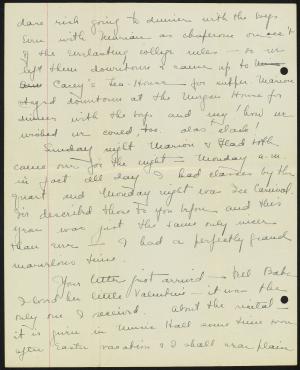 dare risk going to dinner with the boys
even with Marian as chaperone on acc't
of the everlasting college rules — so we
left them downtown & came up to
Carey's Tea-House for supper. Marian
stayed downtown at the Morgan House for
dinner with the boys and my! how we
wished we could, too. alas, alack!
Sunday night Marion & Head both
came over for the night — Monday a.m.
in fact all day I had classes by the
quart and Monday night was Ice Carnival
I've described those to you before and this
year was just the same only nicer
than ever — I had a perfectly grand
marvelous time.
Your letter just arrived — Tell Babe
I loved her little Valentine — it was the
only one I received. About the recital —
it is given in Music Hall some time soon
after Easter vacation & I shall wear plain